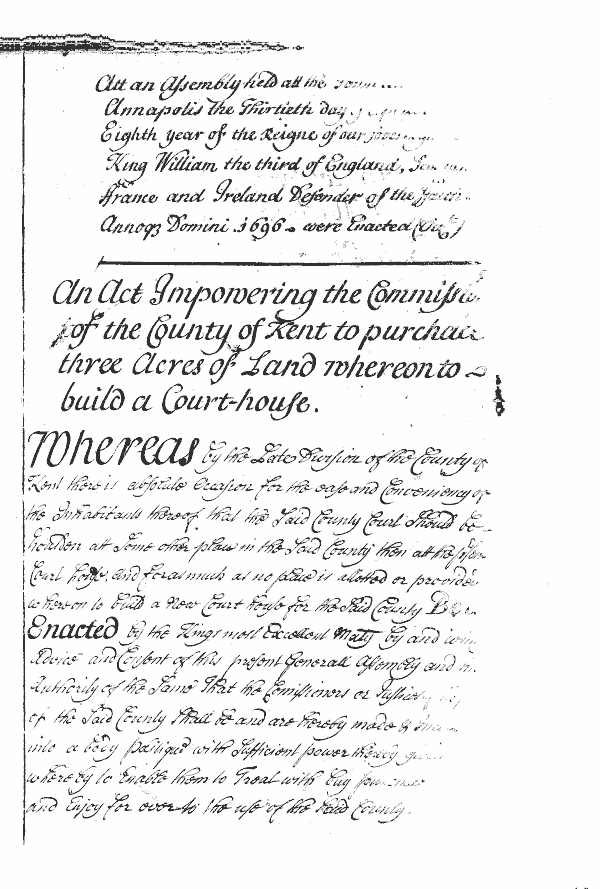 Att an Assembly held att the
Annapolis the Thirtieth day
Eighth year of the Reigne of our
King William the third of England,
ffrance and Ireland Defender of the
Annoq3 Domini 1696 were Enacted
An Act Impowering the
of the County of Kent to purchase
three Acres of Land whereon to
build a Court-house.
Whereas by the Late Division of the County of
Kent there is absolute Occasion for the ease and Conveniency of
the Inhabitants thereof that the Said County Court Should be
houlden att Some other place in the Said County then att the
Court house, and forasmuch as no place is allotted or provided
whereon to build a New Court house for the Said County Bee
Enacted by the Kings most Excellent Maty by and with
Advice and Consent of this present Generall Assembly and
Authority of the Same That the Comissioners or Justices
of the Said County Shall be and are hereby made &
into a body politiqe with Sufficient power thereby
whereby to Enable them to Treat with buy
and Enjoy for ever to the use of the Said County.